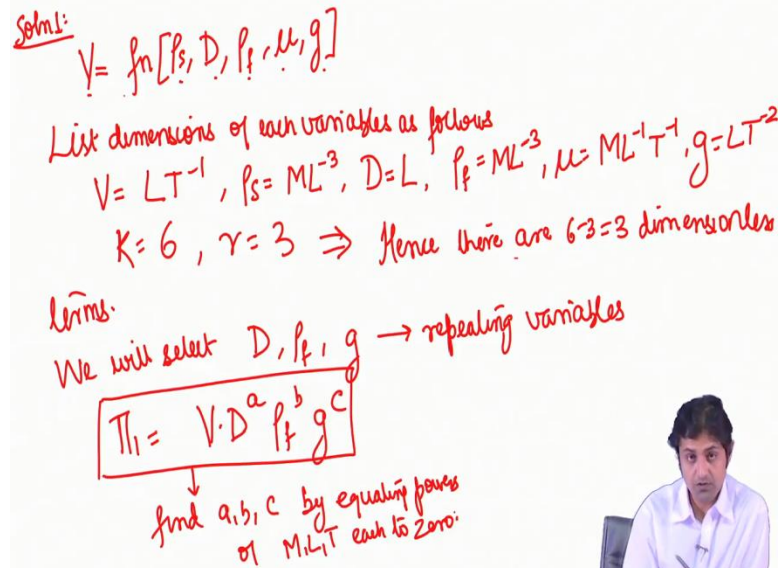 Soln1:
V = fn[ρs, D, ρf, μ, g]
List dimensions of each variables as follows
V = LT⁻¹, ρs = ML⁻³, D = L, ρf = ML⁻³, μ = ML⁻¹T⁻¹, g = LT⁻²
K = 6, r = 3 ⇒ Hence there are 6-3=3 dimensionless
terms.
We will select D, ρf, g → repeating variables
Π₁ = V·Dᵃ ρfᵇ gᶜ
↓
find a,b,c by equating powers
of M,L,T each to zero.